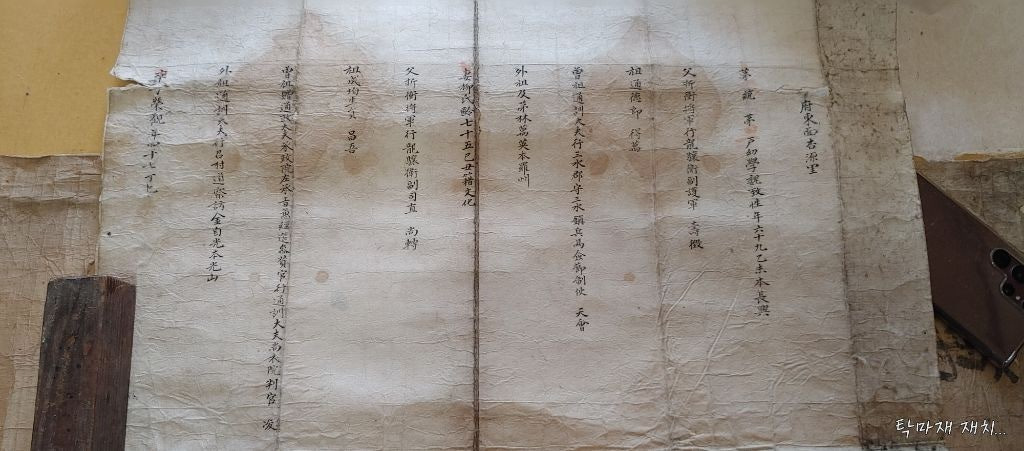 府東面杏源里
第 統 第 戶幼學魏致性年六十九乙未本長興
父折衝將軍行龍驤衛副護軍 壽徵
祖通德郎 得萬
曾祖通訓大夫行三水郡守三水鎭兵馬僉節制使 天會
外祖及第林萬英本羅州
妻柳氏齡七十五己丑籍文化
父折衝將軍行龍驤衛副司直 尙
祖成均生員 昌吾
曾祖贈通政大夫承政院左承旨兼經筵參贊官行通訓大夫尙衣院判官 浚
外祖通訓大夫行呂村道察訪金自光本光山
率子榮觀年四十七丁巳
탁마재 재치...